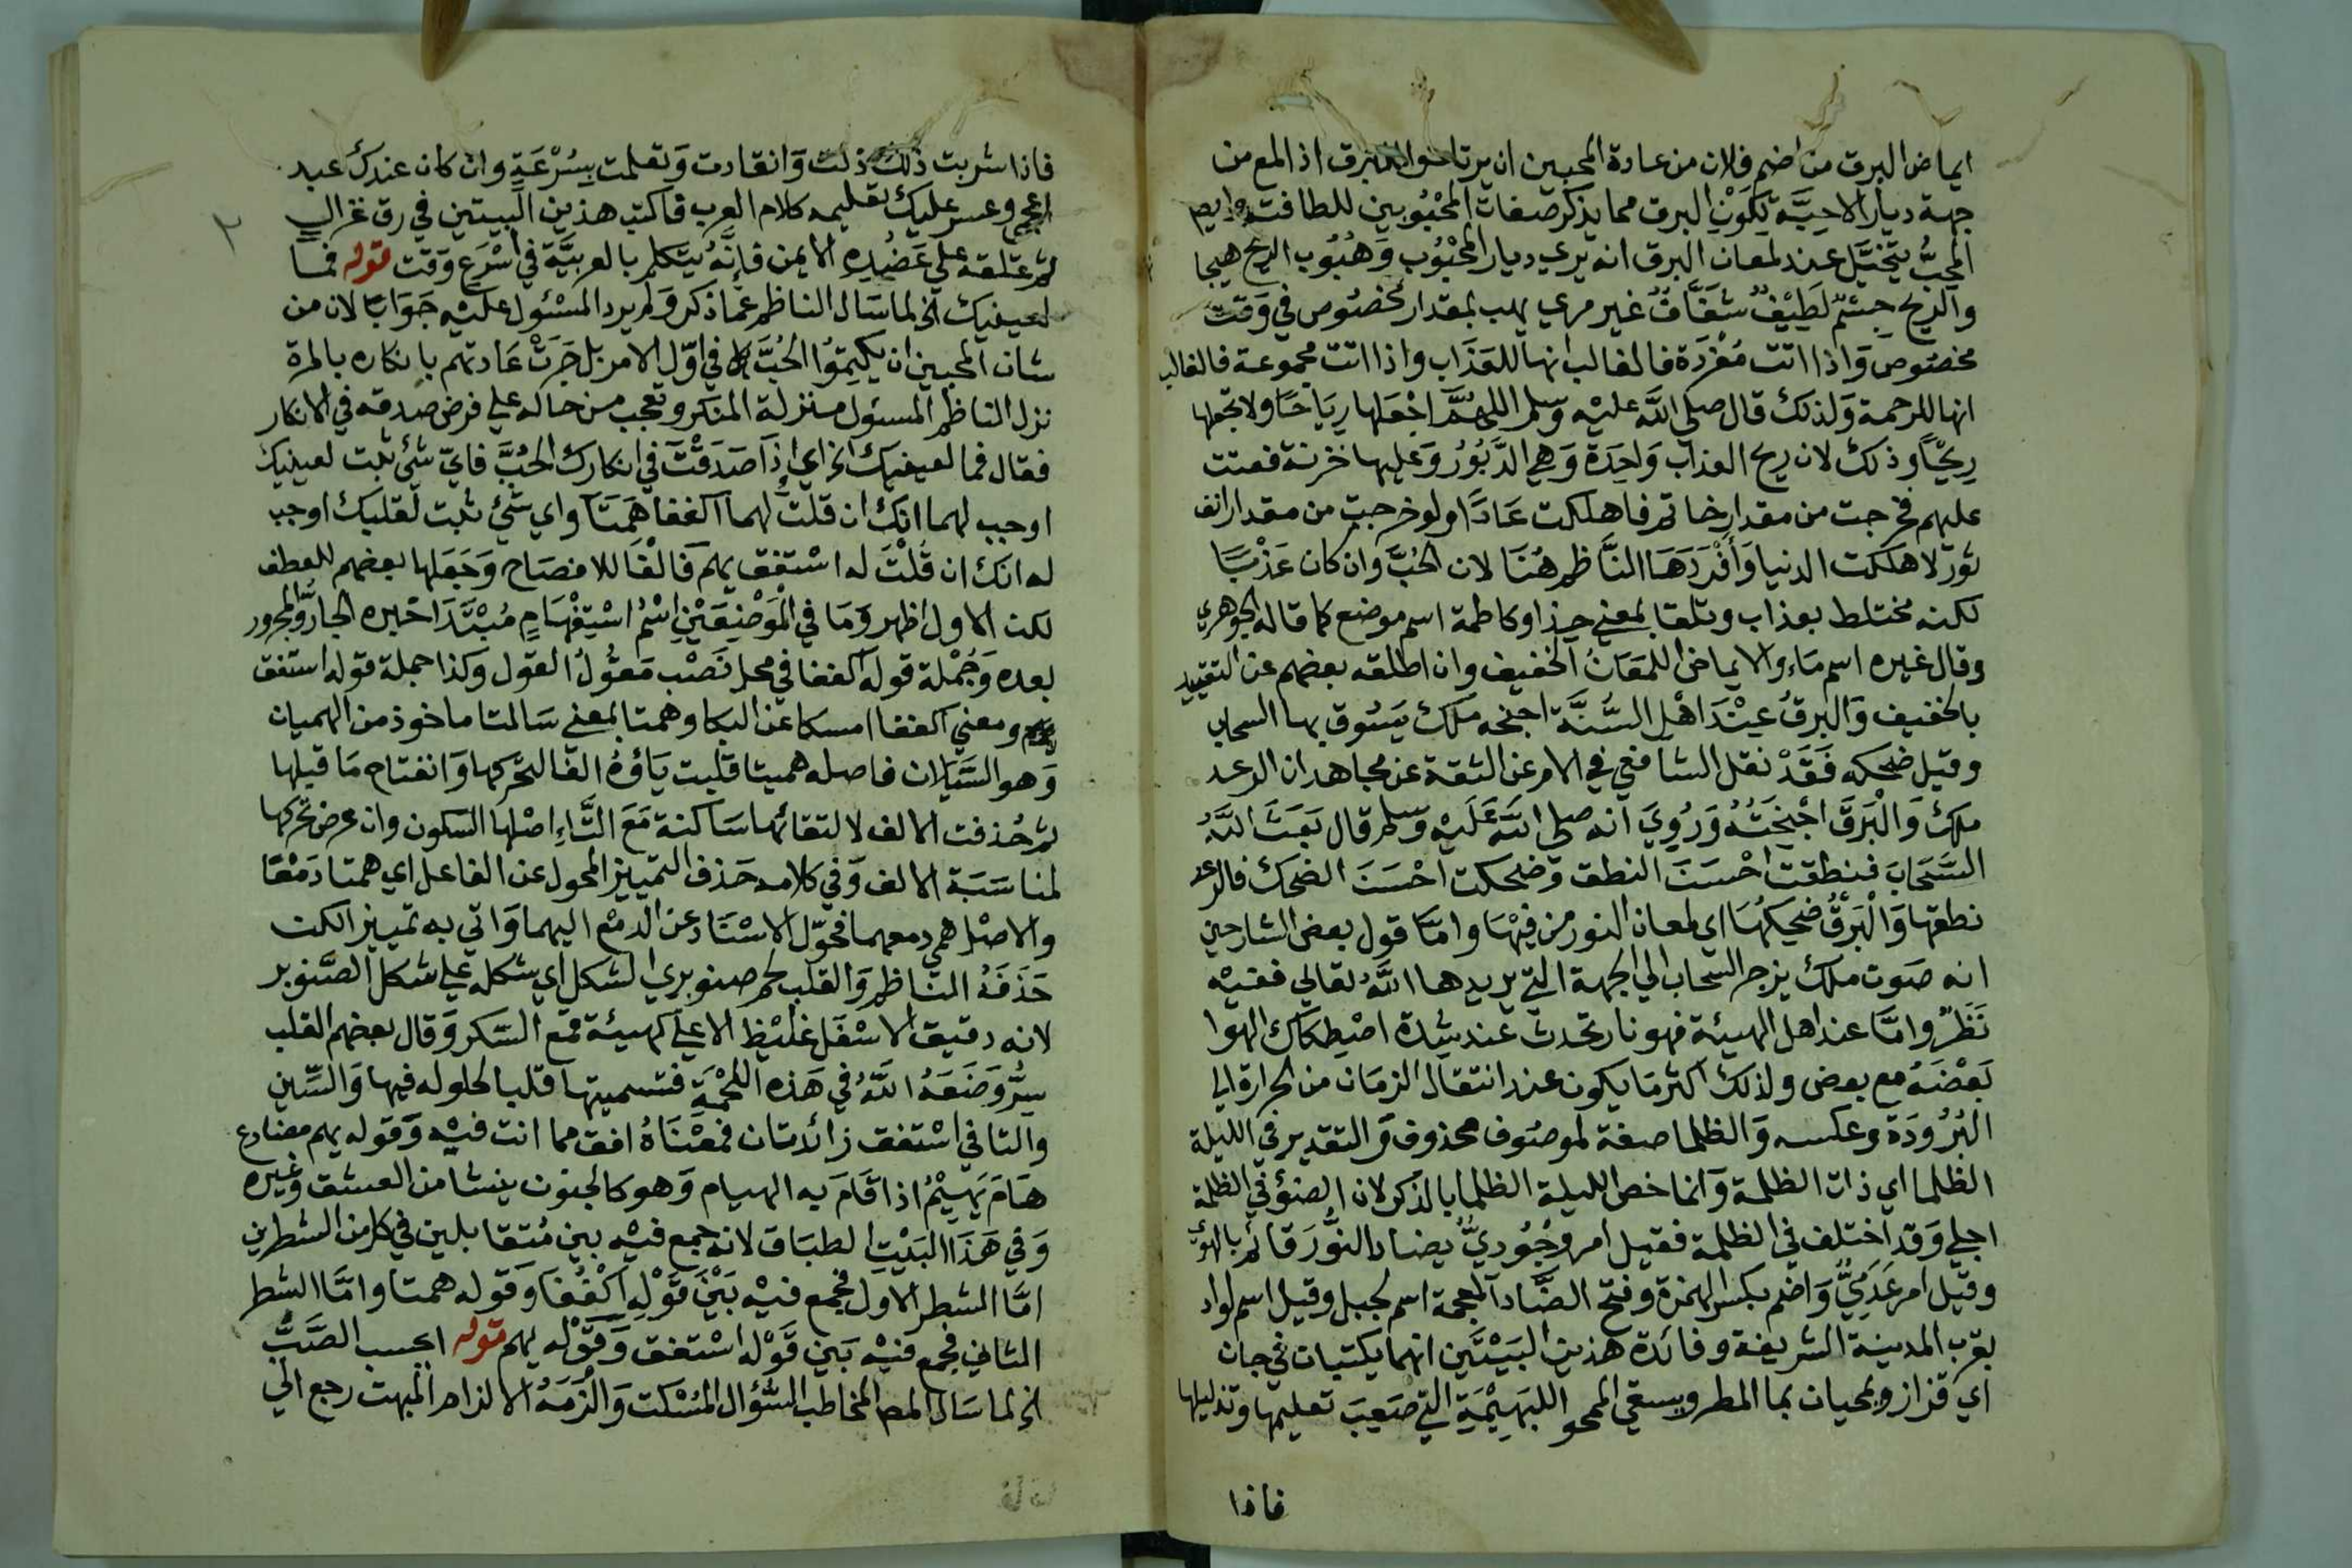 ايماض البرق من اضم فلان من عادة المحبين ان يرتاحوا للبرق اذا لمع من
جهة ديار الاحبة لكون البرق مما يذكر صفات المحبوبين للطافته وايضا
المحب يتخيل عند لمعان البرق انه يري ديار المحبوب وهبوب الريح هيجا
والريح جسم لطيف شفاف غير مرءي يهب بمقدار مخصوص في وقت
مخصوص واذا اتت مفردة فالغالب انها للعذاب واذا اتت مجموعة فالغالب
انها للرحمة ولذلك قال صلي الله عليه وسلم اللهم اجعلها رياحا ولا تجعلها
ريحا وذلك لان ريح العذاب واحدة وهي الدبور وعليها خزنة فعتت
عليهم فخرجت من مقدار خاتم فاهلكت عادا ولو خرجت من مقدار انف
ثور لاهلكت الدنيا وأفردها الناظم هنا لان الحب وان كان عذبا
لكنه مختلط بعذاب وتلقا بمعني حذا وكاظمة اسم موضع كما قاله الجوهري
وقال غيره اسم ماء والايماض اللمعان الخفيف وان اطلقه بعضهم عن التقييد
بالخفيف والبرق عند اهل السنة اجنحه ملك يسوق بها السحاب
وقيل ضحكه فقد نقل الشافعي في الامر عن الثقة عن مجاهد ان الرعد
ملك والبرق اجنحته وروي انه صلي الله عليه وسلم قال بعث الله
السحاب فنطقت احسن النطق وضحكت احسن الضحك فالرعد
نطقها والبرق ضحكها اي لمعان النور من فيها واما قول بعض الشارحين
انه صوت ملك يزجر السحاب الي الجهة التي يريدها الله تعالي ففيه
نظر واما عند اهل الهيئة فهو نار تحدث عند شدة اصطكاك الهوا
بعضه مع بعض ولذلك اكثر ما يكون عند انتقال الزمان من الحرارة الي
البرودة وعكسه والظلما صفة لموصوف محذوف والتقدير في الليلة
الظلما اي ذات الظلمة وانما خص الليلة الظلما بالذكر لان الضوء في الظلمة
اجلي وقد اختلف في الظلمة فقيل امر وجودي يضاد النور قائم بالهوي
وقيل امر عدمي واضم بكسر الهمزة وفتح الضاد المعجمة اسم لجبل وقيل اسم لواد
بقرب المدينة الشريفة وفائدة هذين البيتين انهما يكتبان في جان
اي قزاز ويمحيان بما المطر ويسقي الممحو اللبهيمة التي صعب تعليمها وتذليلها
فاذا
فاذا شربت ذلك ذلت وانقادت وتعلمت بسرعة وان كان عندك عبد
اعجم وعسر عليك تعليمه كلام العرب فاكتب هذين البيتين في رق غزال
ثم علقه علي عضده الايمن فإنه يتكلم بالعربية في أسرع وقت قوله فما
لعينيك الخ لما سال الناظم عما ذكر ولم يرد المسئول عليه جوابا لان من
شان المحبين ان يكتموا الحب في اول الامر بل جرت عادتهم بانكاره بالمرة
نزل الناظم المسئول منزلة المنكر وتعجب من حاله علي فرض صدقه في الانكار
فقال فما لعينيك الخ اي إذا صدقت في انكارك الحب فاي شئ ثبت لعينيك
اوجب لهما انك ان قلت لهما اكففا همتا واي شئ ثبت لقلبك اوجب
له انك ان قلت له استفق يهم فالفا للافصاح وجعلها بعضهم للعطف
لكن الاول اظهر وما في الموضعين اسم استفهام مبتدا خبره الجار والمجرور
بعده وجملة قوله اكففا في محل نصب مقول القول وكذا جملة قوله استفق
ومعني اكففا امسكا عن البكا وهمتا بمعني سالتا ماخوذ من الهميان
وهو السيلان فاصله هميتا قلبت ياؤه الفا لتحركها وانفتاح ما قبلها
ثم حذفت الالف لالتقائها ساكنة مع التاء اصلها السكون وان عرض تحركها
لمناسبة الالف وفي كلامه حذف التمييز المحول عن الفاعل اي همتا دمعًا
والاصل همي دمعهما فحول الاسناد عن الدمع اليهما واتي به تمييز الكن
حذفه الناظم والقلب لحم صنوبري الشكل اي شكله علي شكل الصنوبر
لانه دقيق الاسفل غليظ الاعلي كهيئة قمع السكر وقال بعضهم القلب
سر وضعه الله في هذه اللحمة فتسميتها قلبا لحلوله فيها والسين
والتا في استفق زائدتان فمعناه افق مما انت فيه وقوله يهم مضارع
هام يهيم اذا قام به الهيام وهو كالجنون ينشا من العشق وغيره
وفي هذا البيت الطباق لانه جمع فيه بين متقابلين في كل من الشطرين
اما الشطر الاول فجمع فيه بين قوله اكففا وقوله همتا واما الشطر
الثاني فجمع فيه بين قوله استفق وقوله يهم قوله ايحسب الصب
الخ لما سال المص المخاطب السؤال المسكت والزمه الالزام المبهت رجع الي